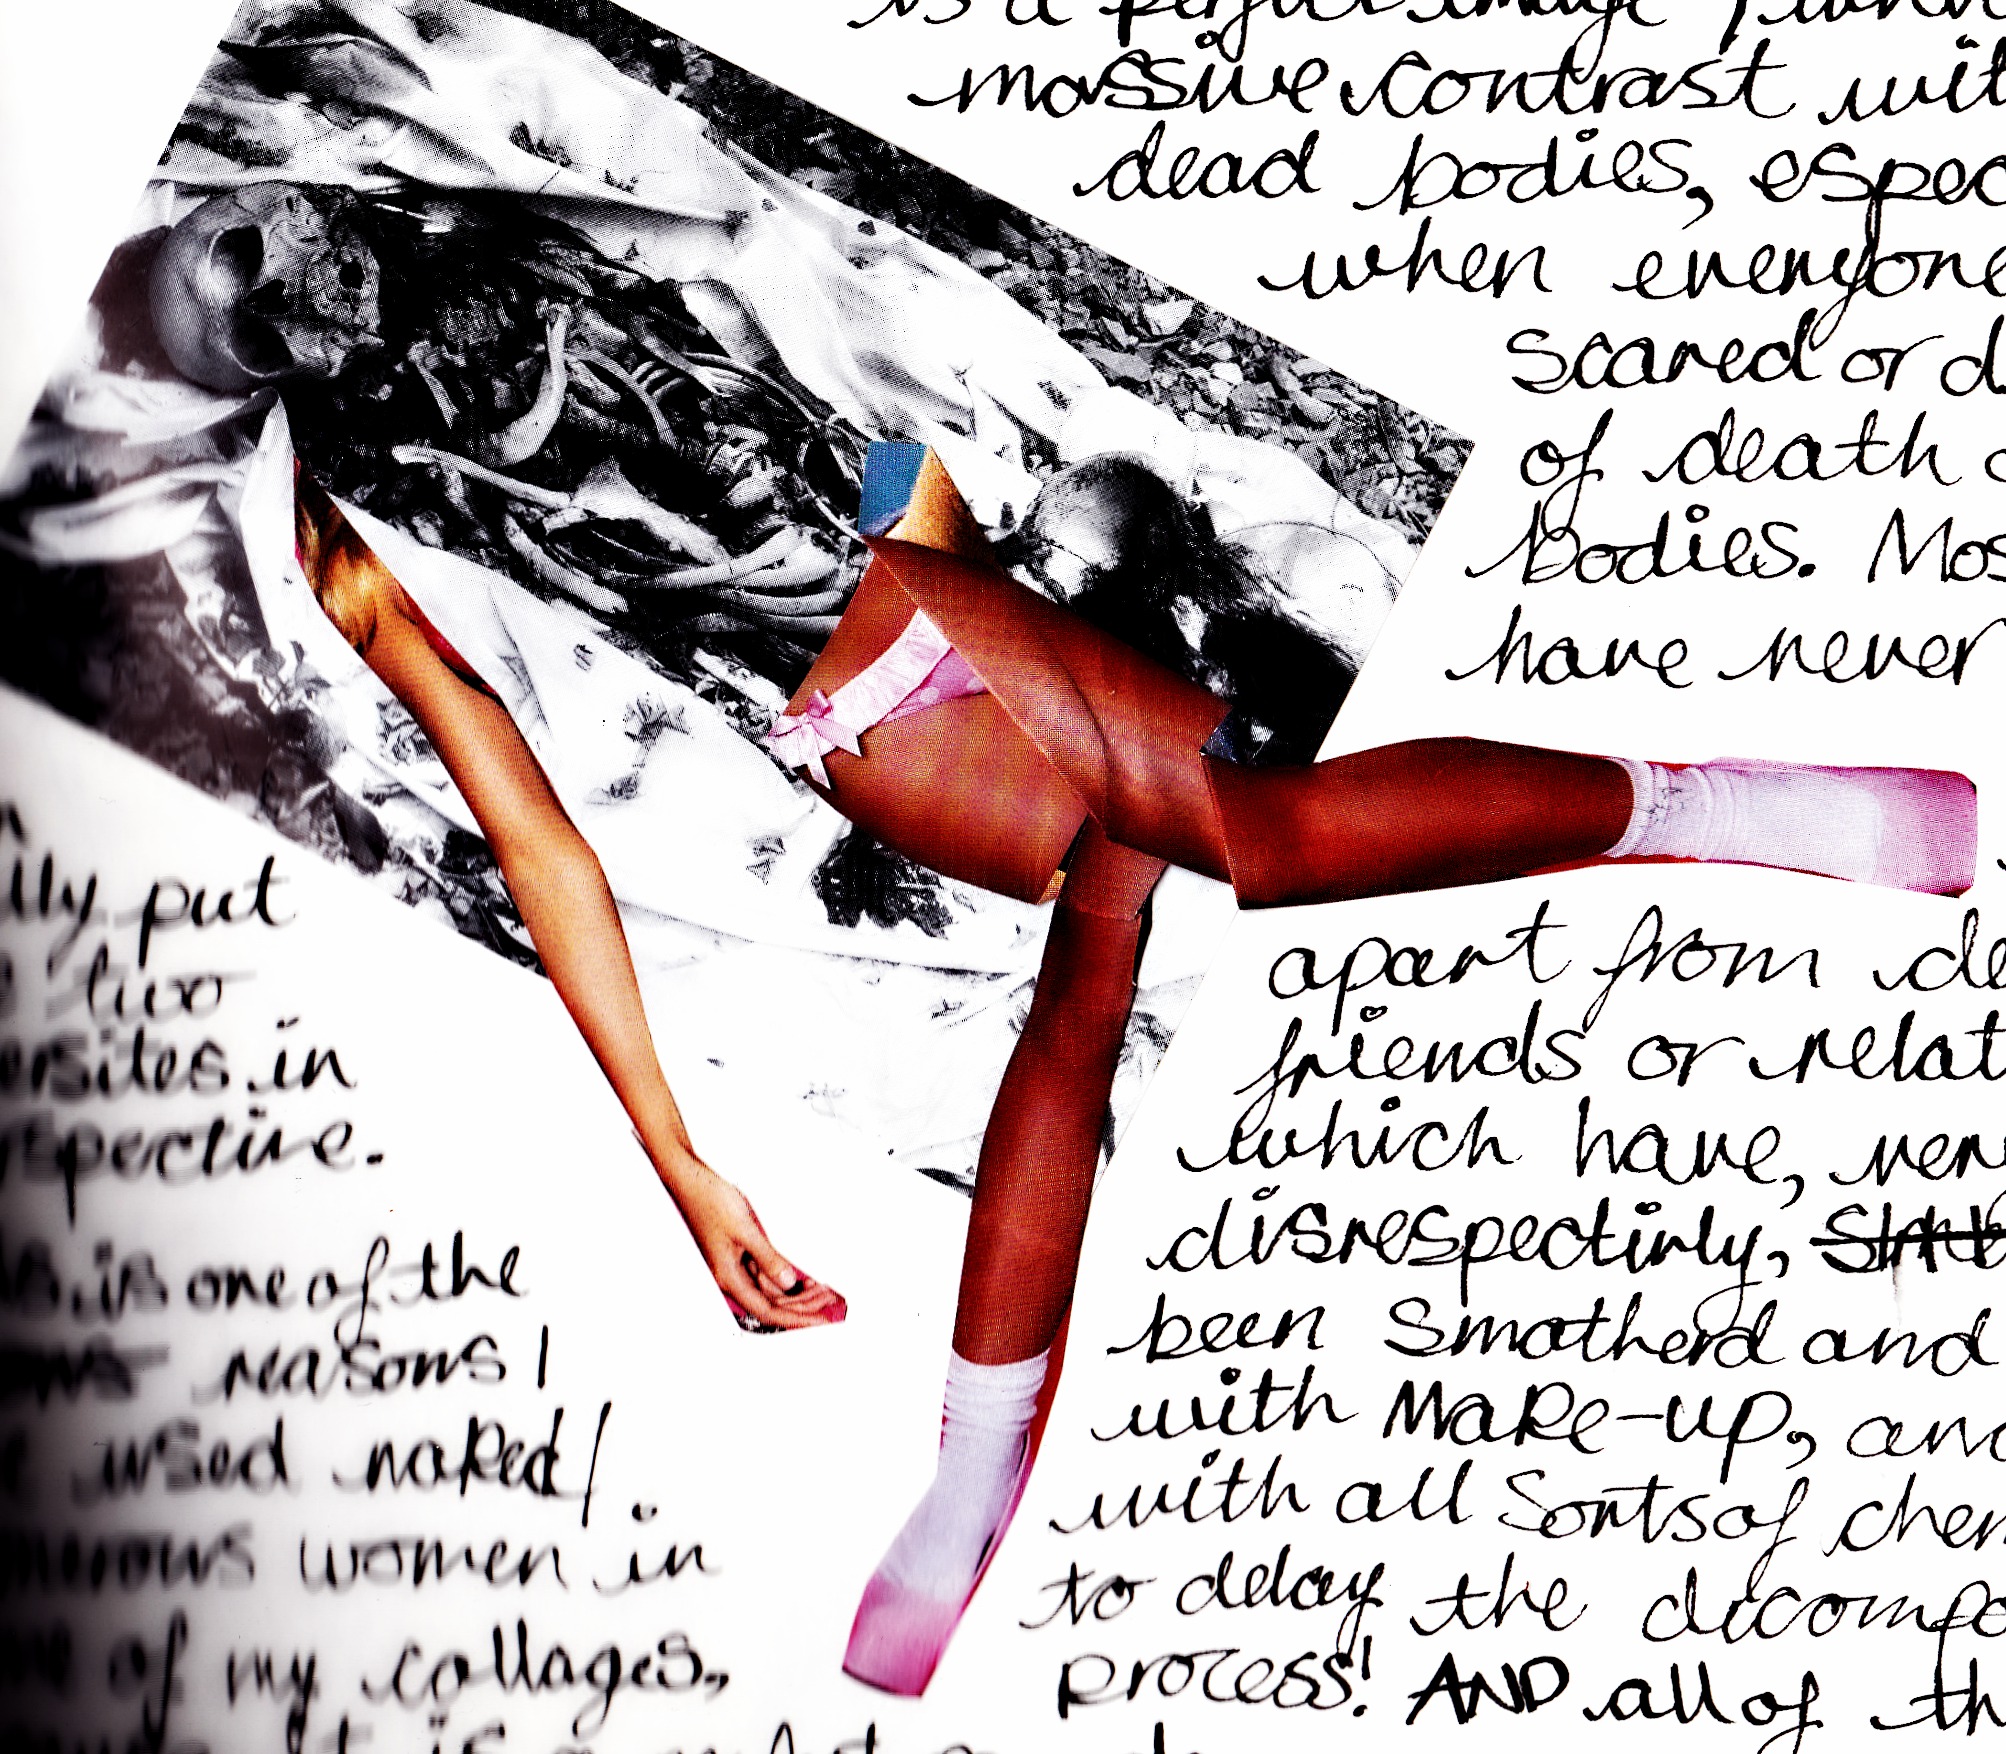 is a perfect image
massive contrast wit
dead bodies, espec
when everyone
scared or d
of death
bodies. Mos
have never
apart from de
friends or relat
which have, very
disrespectivly,
been Smotherd and
with Make-up, and
with all Sorts of chem
to delay the decompo
process! AND all of th
lly put
two
ersites in
spective.
is one of the
reasons I
used naked/
women in
of my collages,
It is a